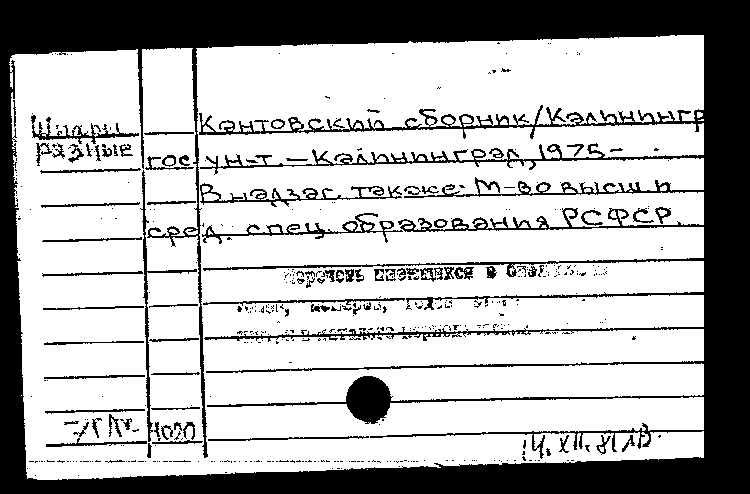 Шифры
разные
Кантовский сборник/Калинингр
гос. ун-т. – Калининград, 1975 –
В надзаг. также: М-во высш и
сред. спец. образования РСФСР.
Перечень имеющихся в
номеров, годов
в каталоге
4020
14. XII. 81